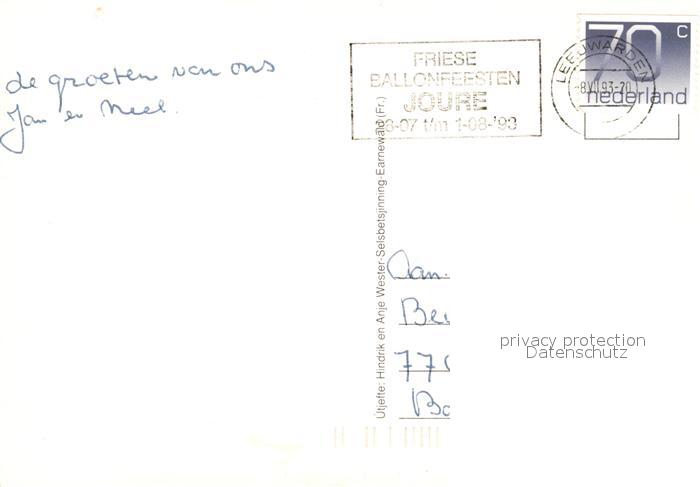 de groeten van ons
Jan en Neel.
FRIESE
BALLONFEESTEN
JOURE
-07 t/m 1-08-'93
LEEUWARDEN
-8.VII.93-20
70 c
nederland
Útjefte: Hindrik en Anje Wester-Selsbetsjinning-Earnewâld (Fr.)
Aan.
privacy protection
Datenschutz